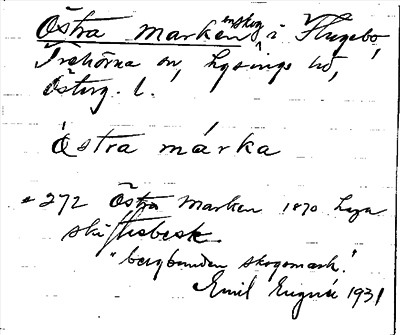 Östra marken enskog i Flugebo
Trehörna sn, Lysings hd,
Österg. l.
östra márka
272 Östra Marken 1870 Laga
skiftesbesk.
"bergbunden skogsmark."
Emil 1931